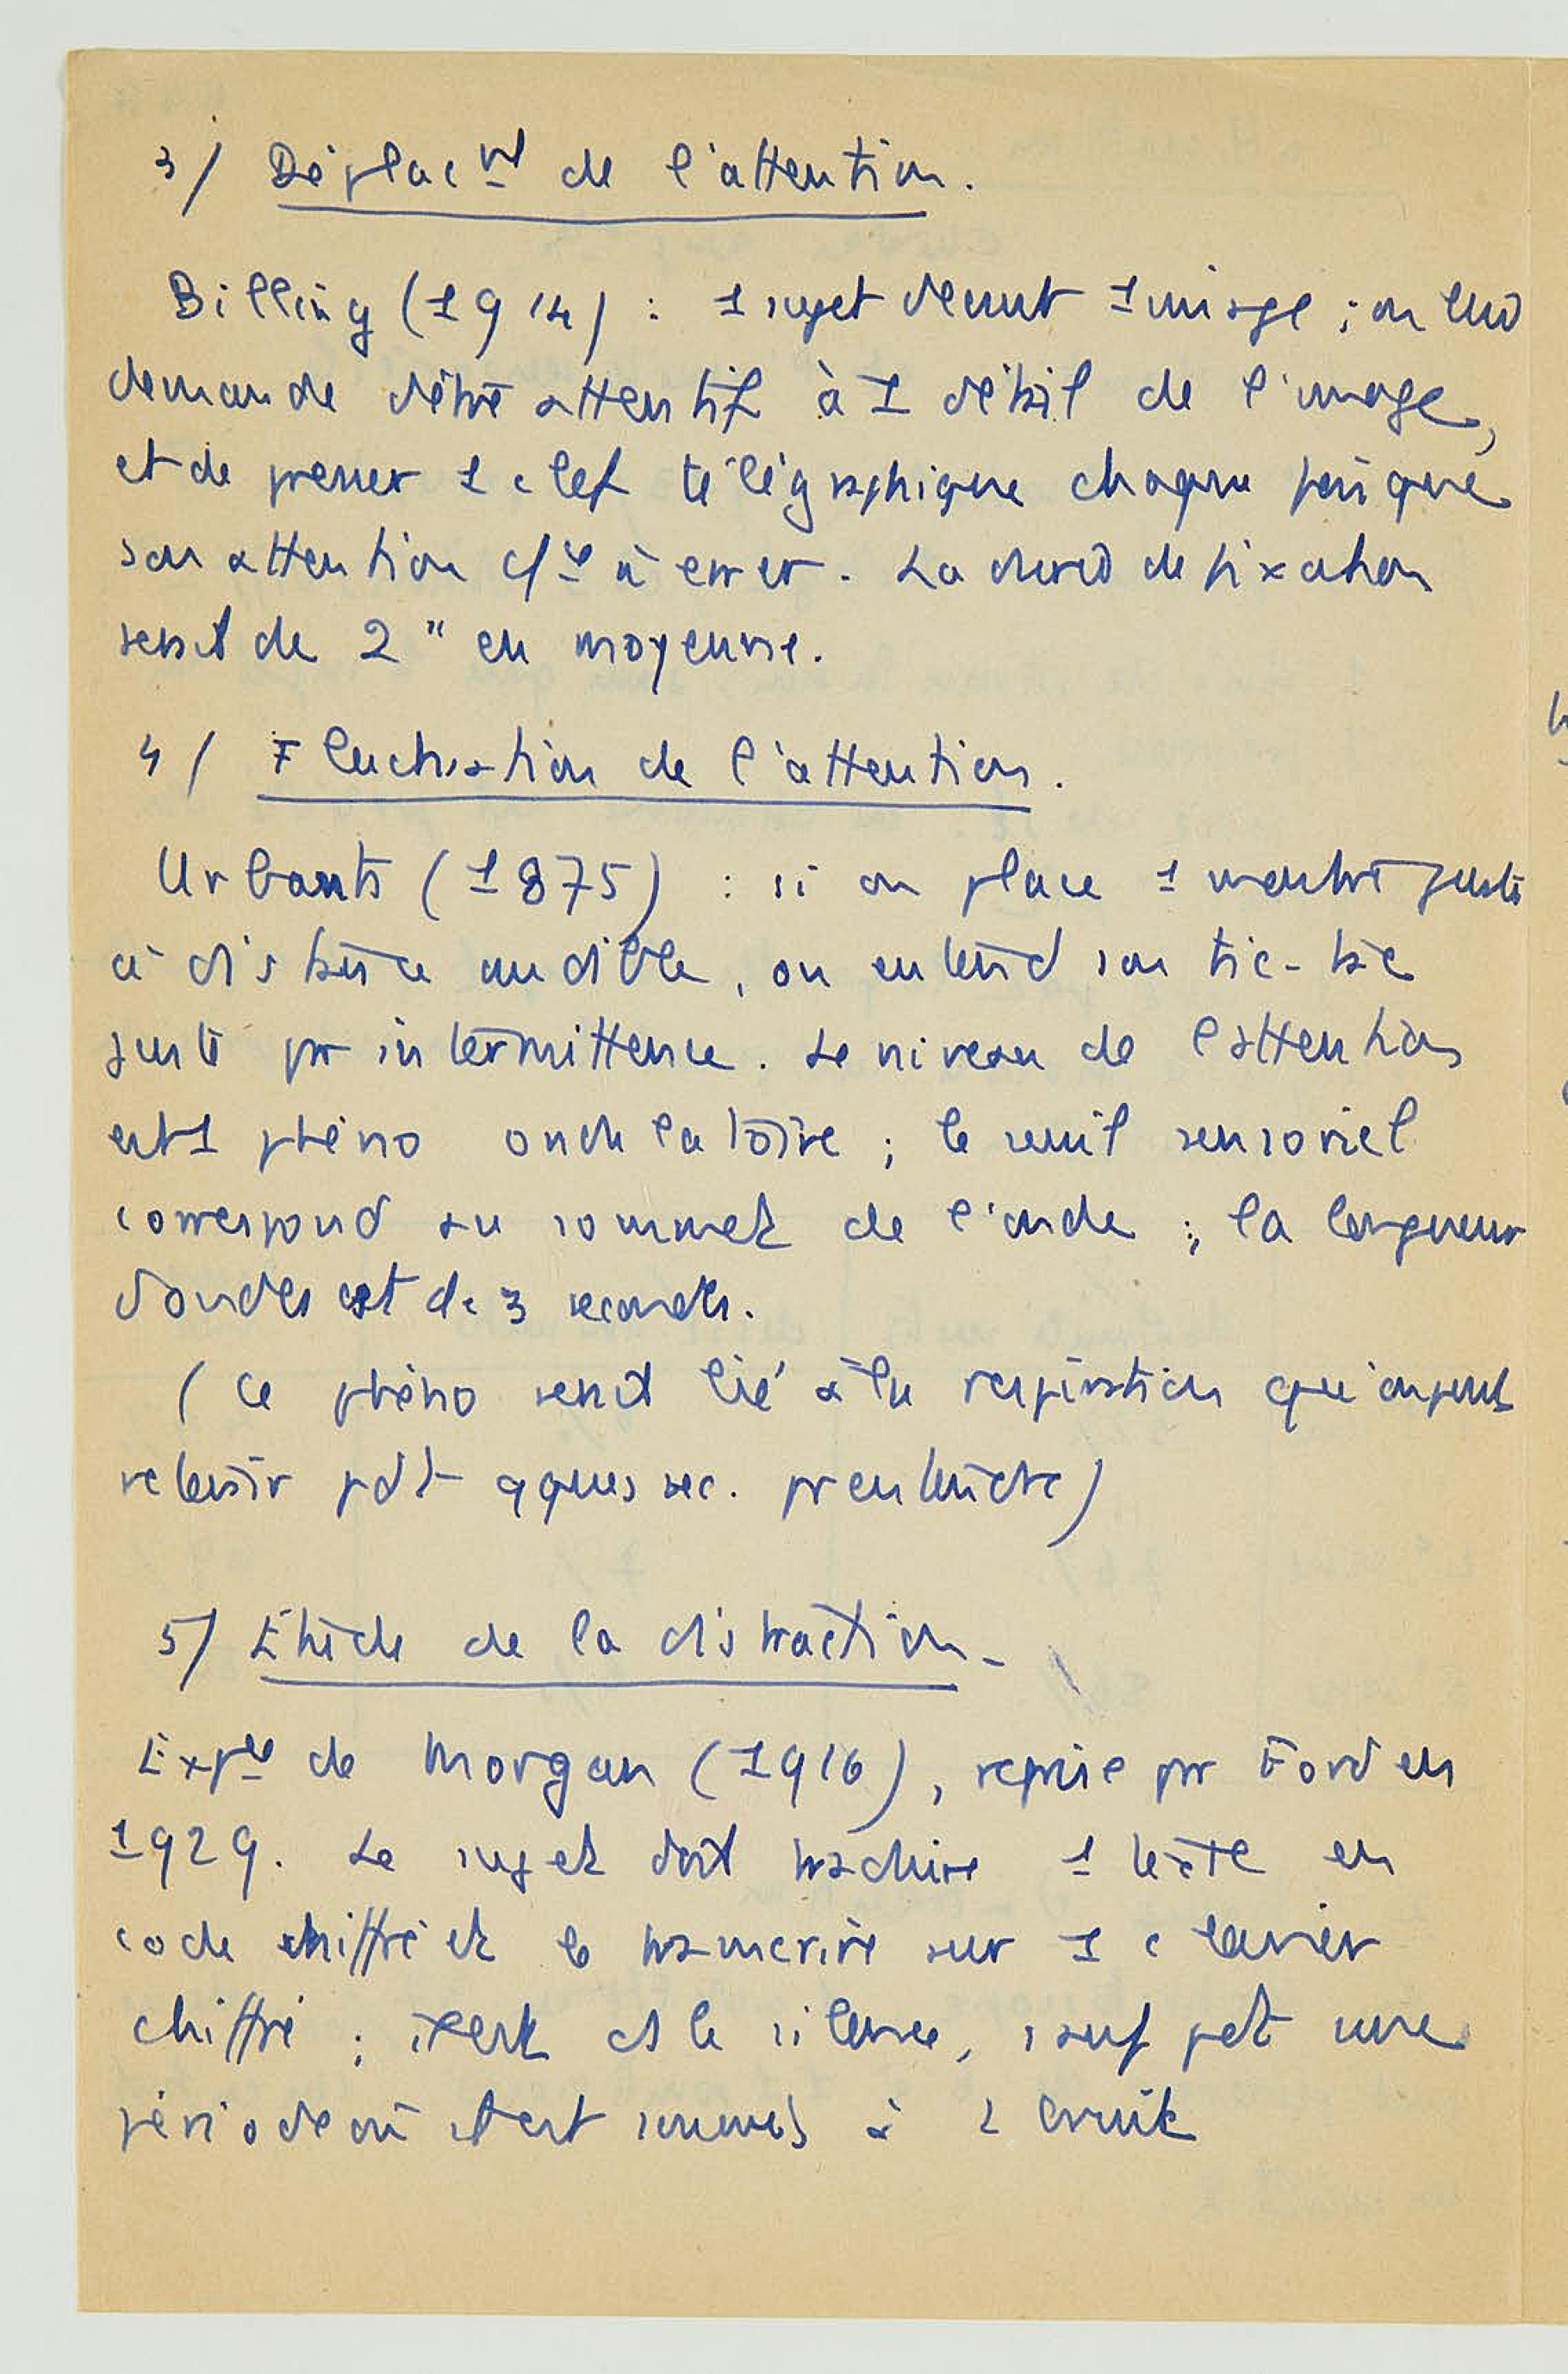 3/ Déplac^nt de l'attention.
Billing (1914) : 1 sujet devant 1 image ; on lui
demande d'être attentif à 1 détail de l'image,
et de presser 1 clef télégraphique chaque fois que
son attention c/^ce à errer. La durée de fixation
serait de 2" en moyenne.
4/ Fluctuation de l'attention.
Urbants (1875) : si on place 1 montre juste
à distance audible, on entend son tic-tac
juste pr intermittence. Le niveau de l'attention
est 1 phéno ondulatoire ; le seuil sensoriel
correspond au sommet de l'onde ; la longueur
d'ondes est de 3 secondes.
(Ce phéno serait lié à la respiration qu'on peut
retenir pdt qques sec. pr entendre)
5/ Etude de la distraction.
Exp^ce de Morgan (1916), reprise pr Ford en
1929. Le sujet doit traduire 1 texte en
code chiffré et le transcrire sur 1 clavier
chiffré ; il est ds le silence, sauf pdt une
période où il est soumis à 1 bruit